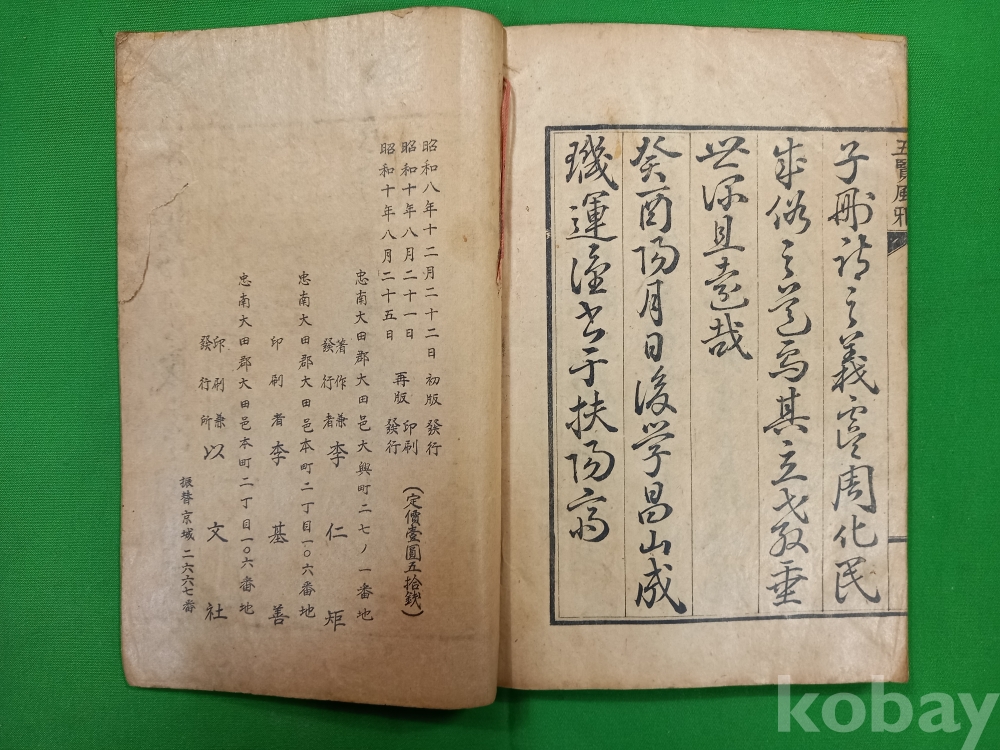 五賢風雅
子刪詩之義寔周化民
成俗之道焉其立教垂
世深且遠哉
癸酉陽月日後学昌山成
璣運謹書于扶陽齋
昭和八年十二月二十二日 初版 發行
昭和十年八月二十一日 印刷
昭和十年八月二十五日 再版 發行
(定價壹圓五拾錢)
忠南大田郡大田邑大興町二七ノ一番地
著作兼
發行者 李仁矩
忠南大田郡大田邑本町二丁目一〇六番地
印刷者 李基善
忠南大田郡大田邑本町二丁目一〇六番地
印刷兼
發行所 以文社
振替京城二六六七番
kobay